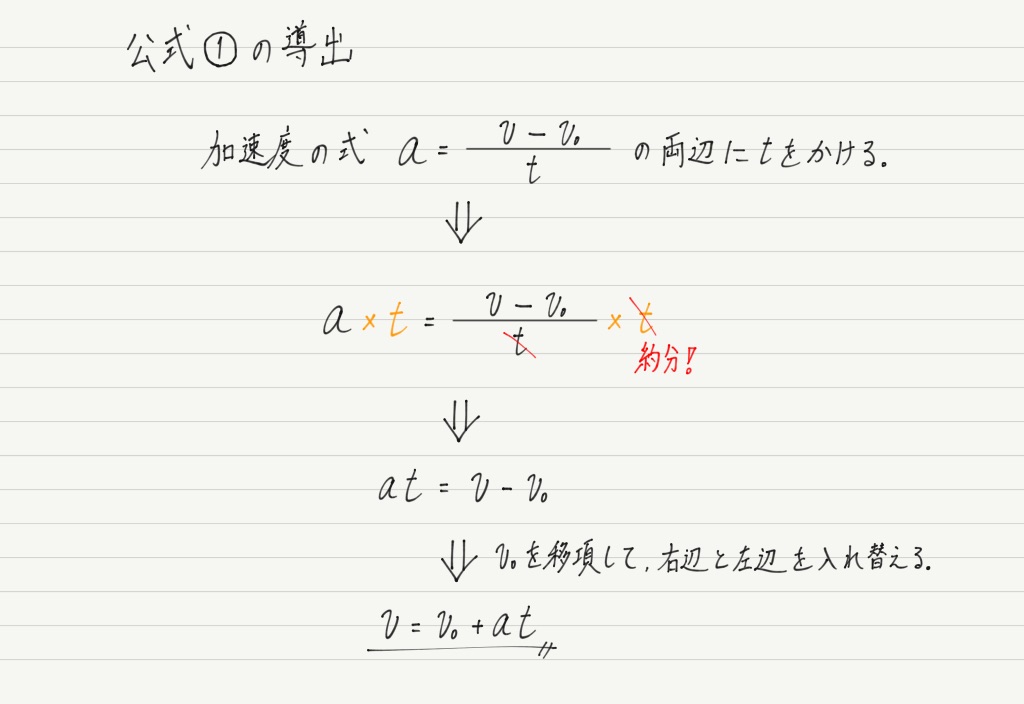 公式①の導出
加速度の式 a = (v − v₀)/t の両辺に t をかける.
⇓
a × t = (v − v₀)/t × t
約分!
⇓
at = v − v₀
⇓ v₀を移項して, 右辺と左辺を入れ替える.
v = v₀ + at